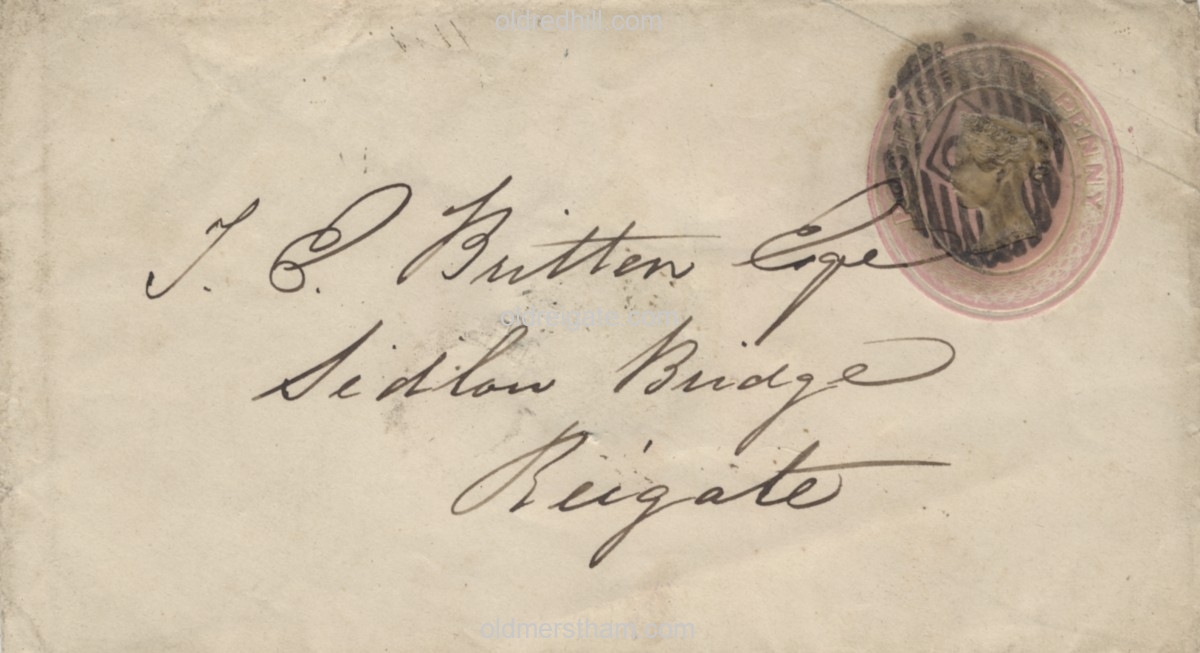 oldredhill.com
ONE PENNY
T. E. Britten Esqe
oldreigate.com
Sidlow Bridge
Reigate
oldmerstham.com